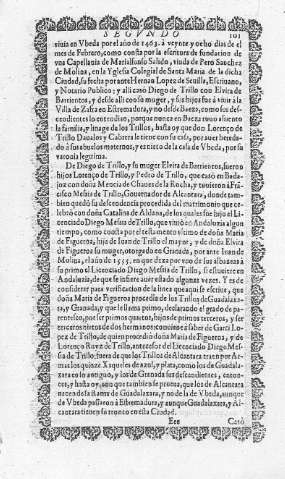 SEGVNDO 101
viuia en Vbeda por el año de 1463. a veynte y ocho dias de
mes de Febrero, como consta por la escritura de fundacion de
vna Capellania de Marialfonso Salido, viuda de Pero Sanchez
de Molina, en la Yglesia Colegial de Santa Maria de la dicha
Ciudad, su fecha por ante Hernan Lopez de Seuilla, Escriuano,
y Notario Publico; y alli casò Diego de Trillo con Eluira de
Barrientos, y desde alli con su muger, y sus hijos fue à viuir à la
Villa de Zafra en Estremadura, y no desde Baeza, como sus des-
cendientes lo entendian, porque nunca en Baeza tuuo assiento
su familia, y linage de los Trillos, hasta que don Lorenço de
Trillo Daualos y Cabrera le tiene con su casa, por auer hereda-
do à sus abuelos maternos, y es nieto de la casa de Vbeda, por su
varonia legitima.
De Diego de Trillo, y su muger Eluira de Barrientos, fueron
hijos Lorenço de Trillo, y Pedro de Trillo, que casò en Badajoz
con doña Mencia de Chaues de la Rocha, y tuuieron à Frā-
cisco Mesia de Trillo, Gouernador de Alcantara, donde tam-
bien quedò su descendencia procedida del matrimonio que ce-
lebrò con doña Catalina de Aldana, de los quales fue hijo el Li-
cenciado Diego Mesia de Trillo, que viuiò en Andaluzia algun
tiempo, como consta por el testamento vltimo de doña Maria
de Figueroa, hija de Iuan de Trillo el mayor, y de doña Eluira
de Figueroa su muger, otorgado en Granada, por ante Iuan de
Molina, el año de 1555. en que dexa por vno de sus albaceas à
su primo el Licenciado Diego Mesia de Trillo, si estuuiere en
Andaluzia, de que se infiere auer estado algunas vezes. Y es de
considerar para verificacion de la linea que aqui se escriue, que
doña Maria de Figueroa procedia de los Trillos de Guadalaxara,
y Granada, y que le llama primo, declarando el grado de pa-
rentesco, por ser primos quartos, hijos de primos terceros, y
terceros nietos de dos hermanos conuiene à saber de Garci Lo-
pez de Trillo, de quien procedio doña Maria de Figueroa, y de
Lorenço Ruyz de Trillo, antecessor del Licenciado Diego Me-
sia de Trillo; fuera de que los Trillos de Alcantara traen por Ar-
mas los quinze Xaqueles de azul, y plata, como los de Guadala-
xara en lo antiguo, y los de Granada sus descendientes, enton-
ces, y hasta oy, con que tambien se prueua, que los de Alcantara
nacen desta rama de Guadalaxara, y no de la de Vbeda, aunque
de Vbeda passaron à Estremadura, y aunque Guadalaxara, y Al-
cantara tienen su tronco en esta Ciudad.
Eee Casò